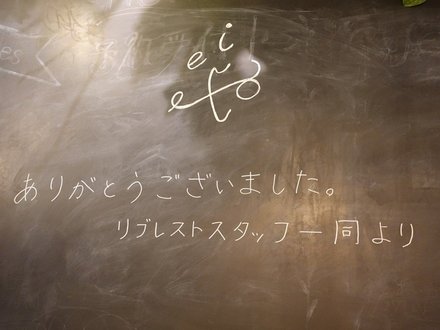 ありがとうございました。
リブレストスタッフ一同より